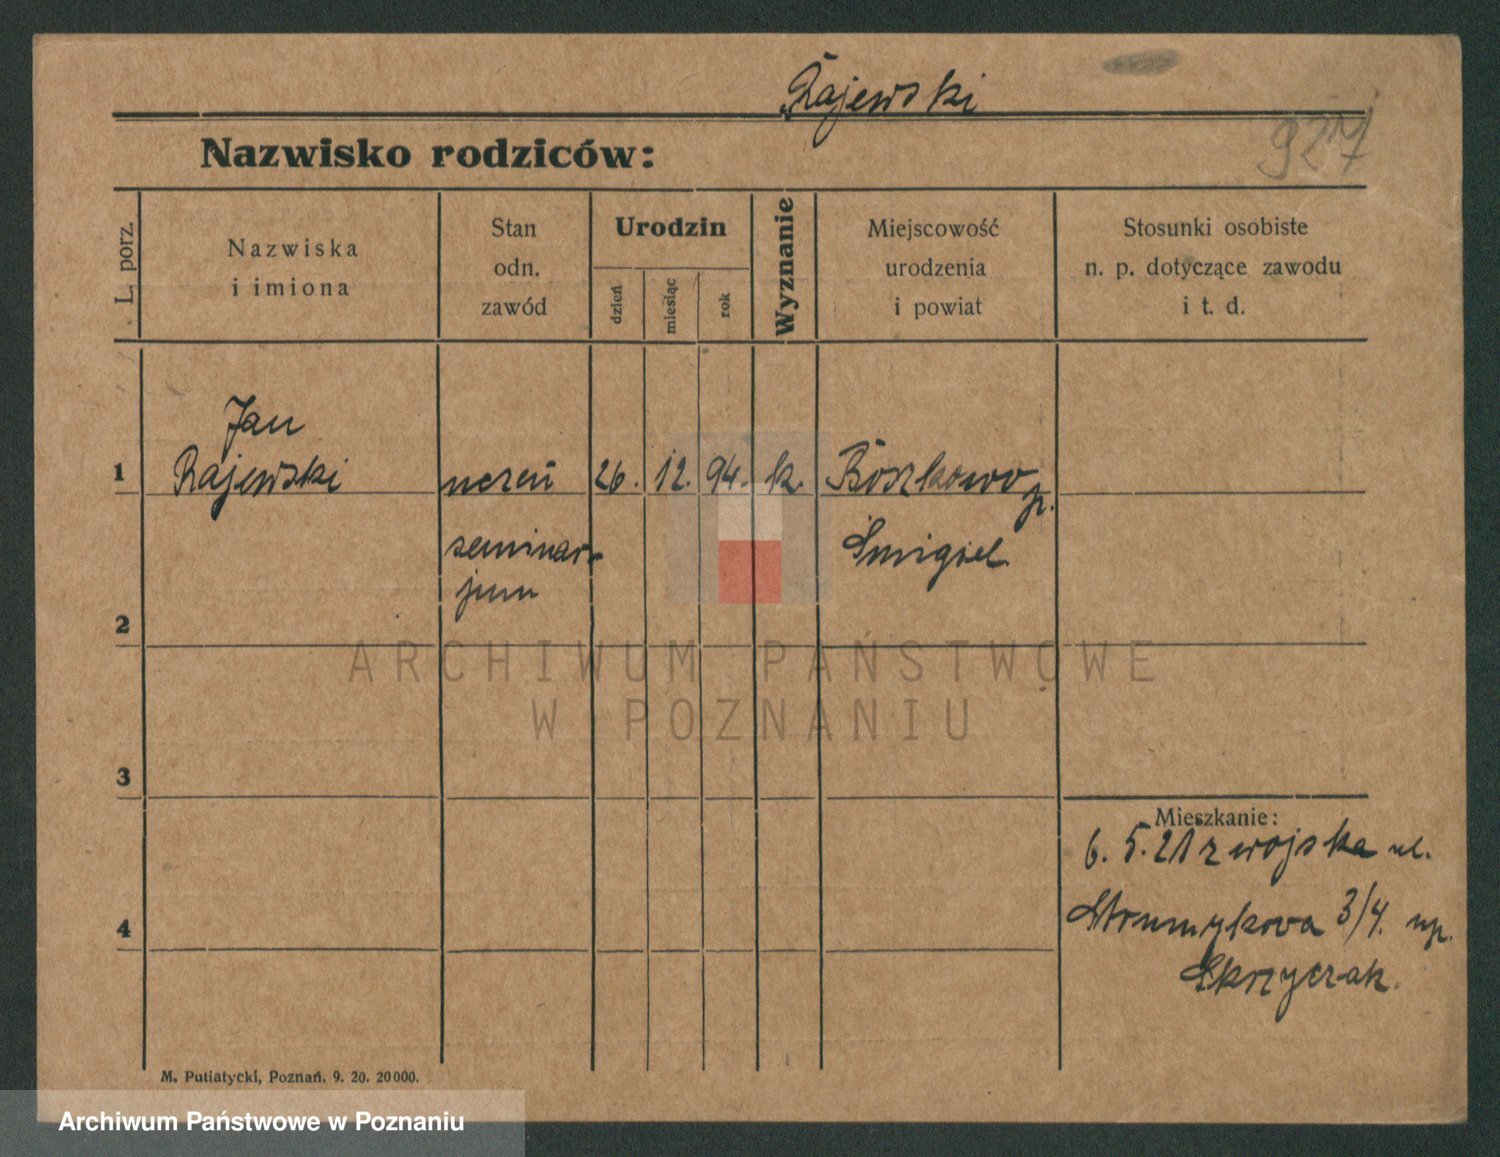 Rajewski
927
Nazwisko rodziców:
L. porz.
Nazwiska
i imiona
Stan
odn.
zawód
Urodzin
dzień
miesiąc
rok
Wyznanie
Miejscowość
urodzenia
i powiat
Stosunki osobiste
n. p. dotyczące zawodu
i t. d.
Jan
1 Rajewski uczeń 26. 12. 94. k. Boszkowo p.
seminar- Śmigiel
jum
2
ARCHIWUM PAŃSTWOWE
W POZNANIU
3
Mieszkanie:
6. 5. 21 z wojska ul.
4 Strumykowa 3/4. up.
Skrzyczak.
M. Putiatycki, Poznań. 9. 20. 20000.
Archiwum Państwowe w Poznaniu